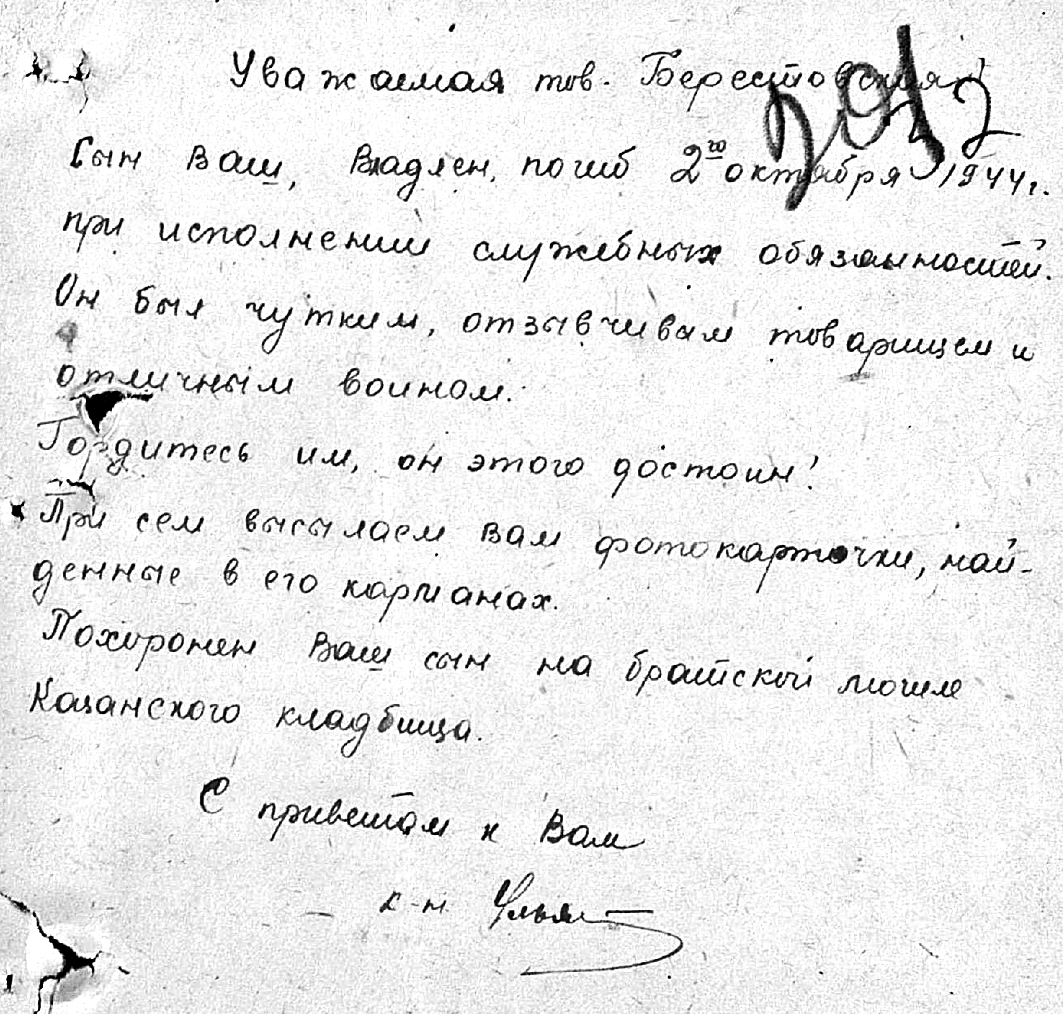 Уважаемая тов. Берестовская!
Сын Ваш, Владлен, погиб 2го октября 1944г.
при исполнении служебных обязанностей.
Он был чутким, отзывчивым товарищем и
отличным воином.
Гордитесь им, он этого достоин!
При сем высылаем Вам фотокарточки, най-
денные в его карманах.
Похоронен Ваш сын на братской могиле
Казанского кладбища.
С приветом к Вам
к-н